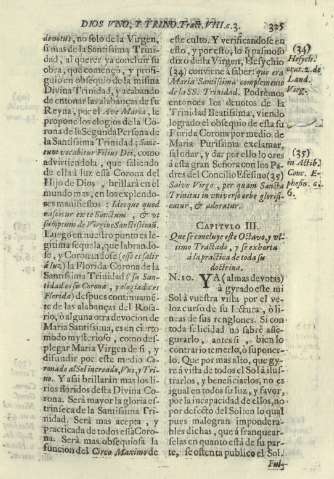 DIOS VNO, Y TRINO. Trat. VIII. c. 3. 325
devotus, no solo de la Virgen,
sino mas de la Santissima Trini-
dad, al querer yà concluir su
obra, que començò, y prosi-
guiò en obsequio de la misma
Divina Trinidad, y acabando
de entonar las alabanças de su
Reyna, por el Ave Maria, le
propone los elogios de la Co-
rona de la Segunda Persona de
la Santissima Trinidad; Sanc-
tum vocabitur Filius Dei, como
advirtiendola, que saliendo
de ella à luz essa Corona del
Hijo de Dios, brillarà en el
mundo mas, en los explendo-
res manifiestos: Ideoque quod
nascetur ex te Sanctum, & ut
Luego en nuestro punto es le-
gitima sequela, que labrando-
se, y Coronandose (esso es salir
à luz) la Florida Corona de la
Santissima Trinidad
Florida) despues continuamē-
te de las alabanças del Rosa-
rio, ò alguna otra devocion de
Maria Santissima, es en cierto
modo mysterioso, como des-
plegar Maria Virgen de sì, y
difundir por este medio Co-
ronado al Sol increado, Vno, y Tri-
no. Y assi brillaràn mas los li-
rios floridos desta Divina Co-
rona. Serà mayor la gloria es-
trinseca de la Santissima Tri-
nidad. Serà mas acepta, y
practicada de todos essa Coro-
na. Serà mas obsequiosa la
funcion del Circo Maximo de
este culto. Y verificandose en
esto, y por esto, lo q̃ asmoso
dixo de la Virgen, Hesychio
(34) conviene à saber: que era
Maria Santissima complemento
de la SS. Trinidad. Podrèmos
entonces los devotos de la
Trinidad Beatissima, viendo
logrado el obsequio de esta su
Florida Corona por medio de
Maria Purissima exclamar,
saludar, y dar por ello loores
à esta gran Señora con los Pa-
dres del Concilio Efesino (35)
Salve Virgo, per quam Sancta
Trinitas in universo orbe glorifi-
catur, & adoratur.
(34)
Hesych.
apud. 2. de
Laud.
Virg.
(35)
in Actib.
Conc. E-
phesin. c.
6.
CAPITULO III.
Que se concluye este Octavo, y vl-
timo Tractado, y se exhorta
à la practica de toda su
doctrina.
N. 10. YA (almas devotas)
à gyrado este mi
Sol à vuestra vista por el ve-
loz curso de su lectura, ò li-
neas de sus renglones. Si con
toda felicidad no sabrè asse-
gurarlo, antes sì, bien lo
contrario temerlo, ò suponer-
lo. Que por mas alto, que gy-
rà vista de todos el Sol à ilus-
trarlos, y beneficiarlos, no es
igual en todos su luz, y favor,
por la incapacidad de ellos, no
por defecto del Sol: en lo qual
pues malogran imponderа-
bles dichas, que à franquear-
selas en quanto està de su par-
te, se ostenta publico el Sol.
Pul-